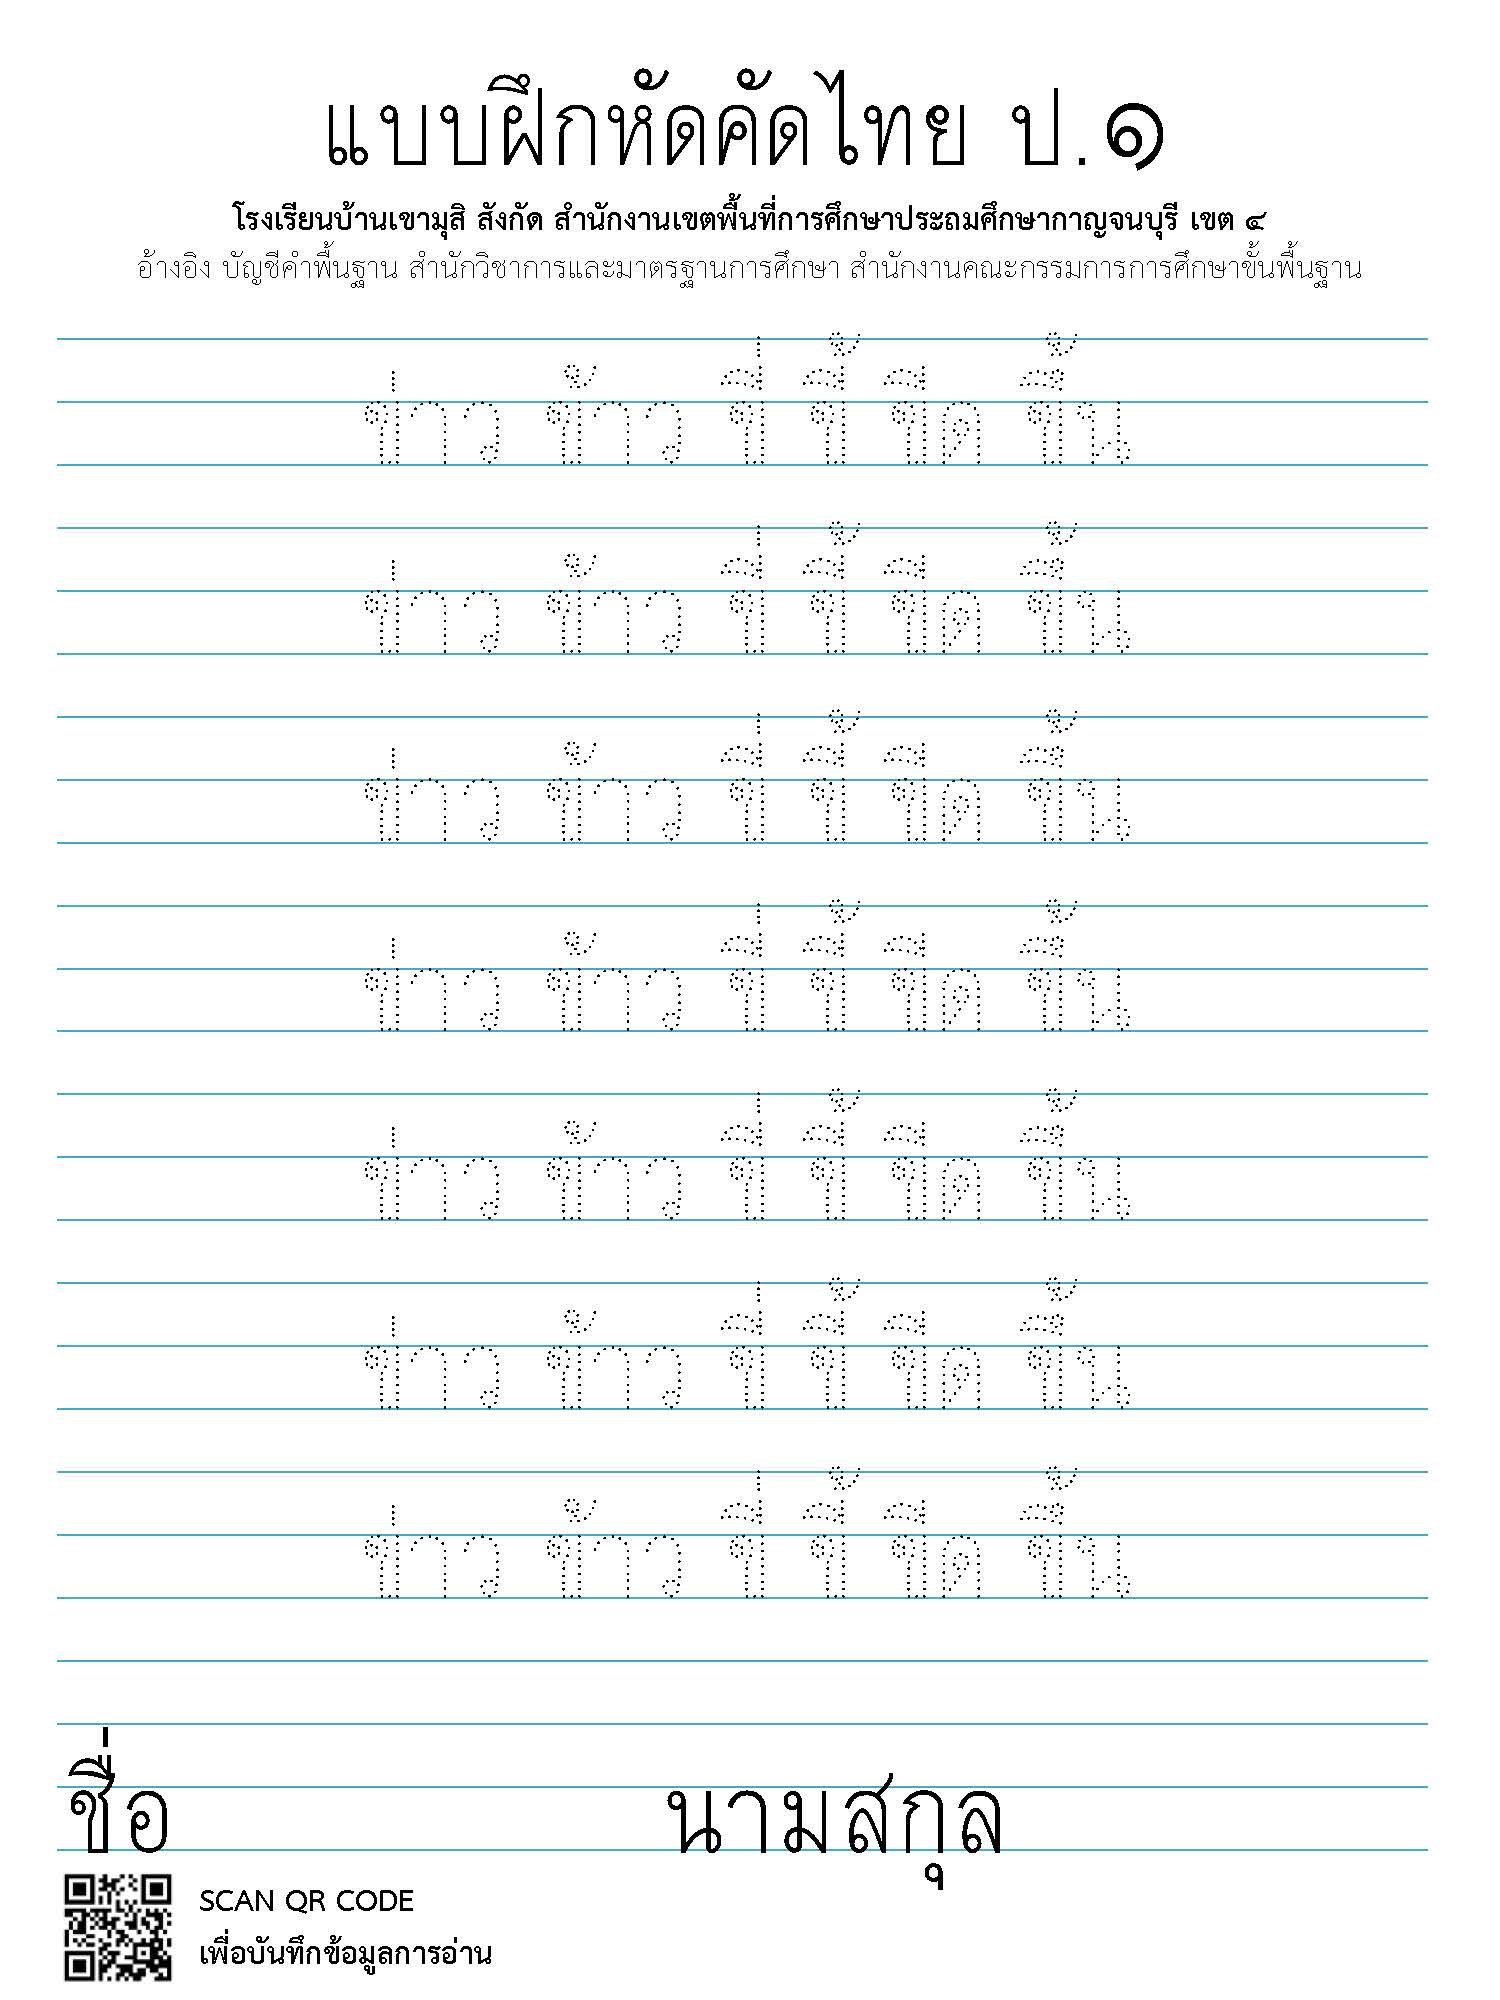 แบบฝึกหัดคัดไทย ป.๑
โรงเรียนบ้านเขามุสิ สังกัด สำนักงานเขตพื้นที่การศึกษาประถมศึกษากาญจนบุรี เขต ๔
อ้างอิง บัญชีคำพื้นฐาน สำนักวิชาการและมาตรฐานการศึกษา สำนักงานคณะกรรมการการศึกษาขั้นพื้นฐาน
ข่าว ข้าว ขี่ ขี้ ขีด ขึ้น
ข่าว ข้าว ขี่ ขี้ ขีด ขึ้น
ข่าว ข้าว ขี่ ขี้ ขีด ขึ้น
ข่าว ข้าว ขี่ ขี้ ขีด ขึ้น
ข่าว ข้าว ขี่ ขี้ ขีด ขึ้น
ข่าว ข้าว ขี่ ขี้ ขีด ขึ้น
ข่าว ข้าว ขี่ ขี้ ขีด ขึ้น
ชื่อ นามสกุล
SCAN QR CODE
เพื่อบันทึกข้อมูลการอ่าน